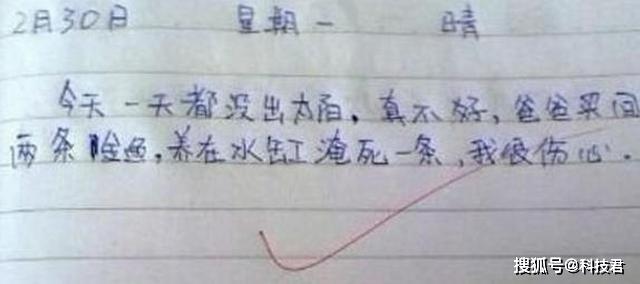 2月30日 星期一 晴
今天一天都没出太阳，真不好，爸爸买回
两条鱼，养在水缸淹死一条，我很伤心．
搜狐号@科技君